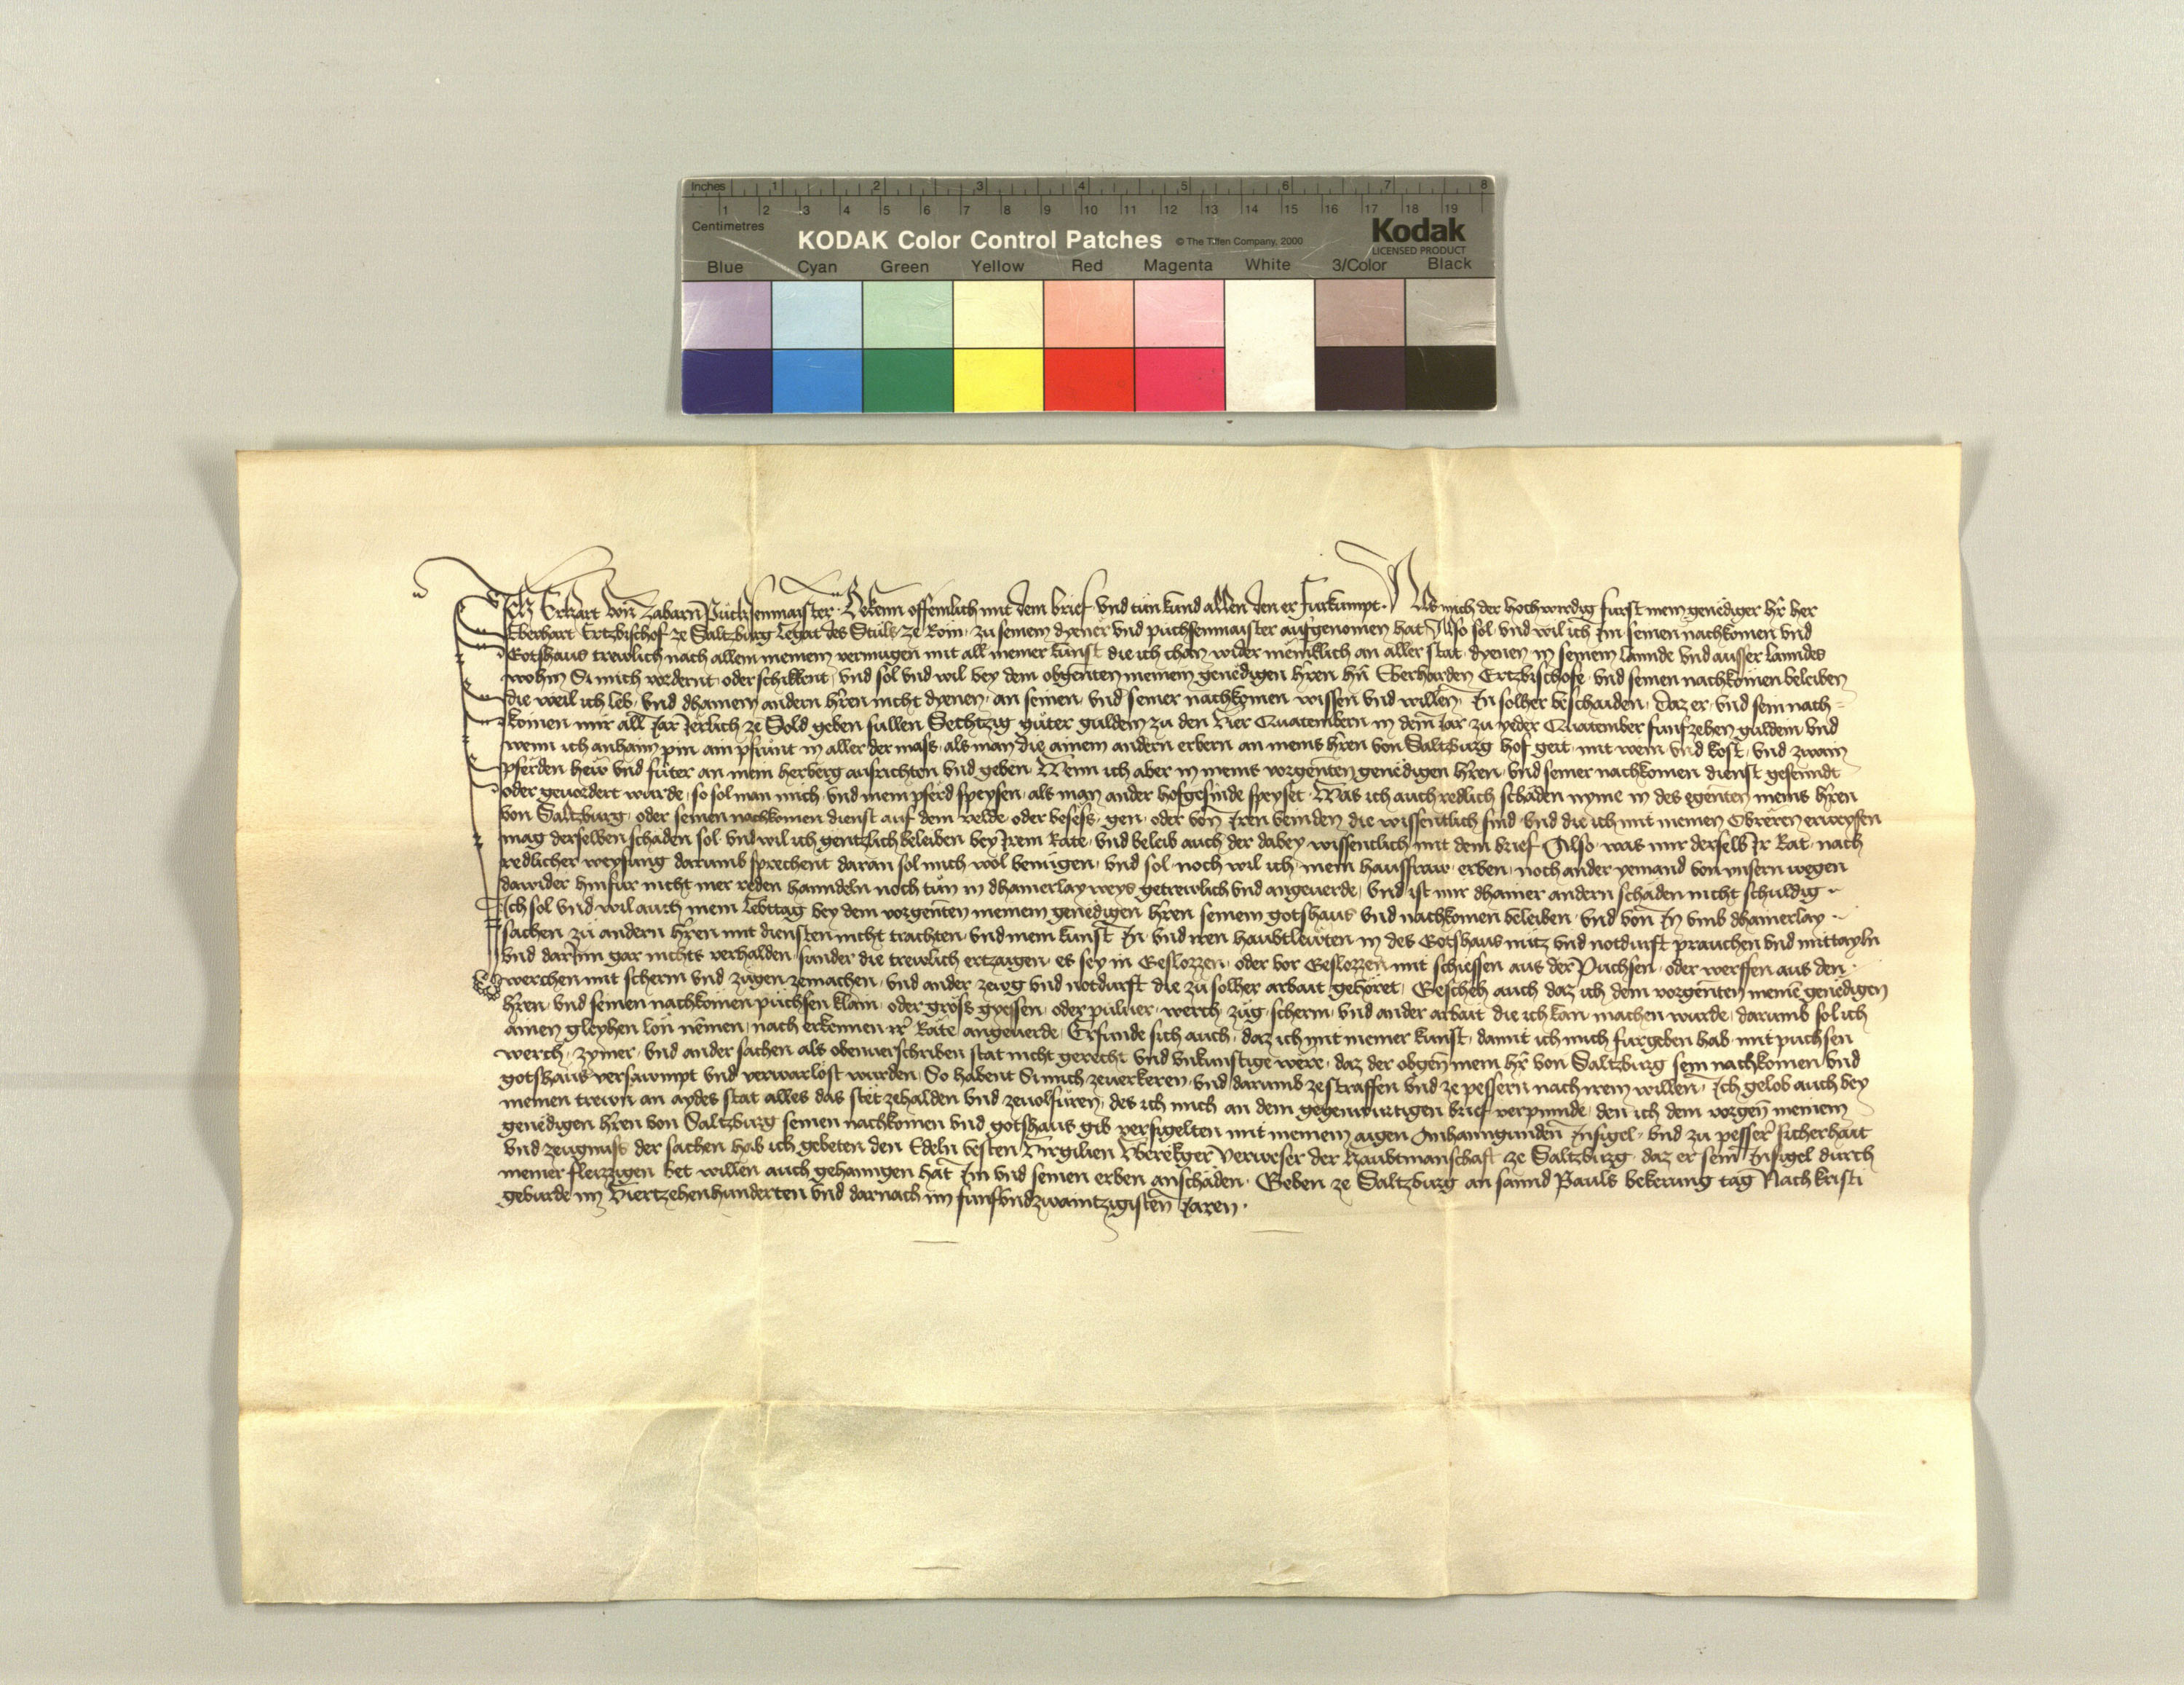 Inches 1 2 3 4 5 6 7 8
1 2 3 4 5 6 7 8 9 10 11 12 13 14 15 16 17 18 19
Centimetres
KODAK Color Control Patches © The Tiffen Company, 2000 Kodak
LICENSED PRODUCT
Blue Cyan Green Yellow Red Magenta White 3/Color Black
Ich Erhart von Zabarn Püchsenmaister Bekenn offennlich mit dem brief vnd tün kund allen den er furkumpt Als mich der hochwirdig furst mein genediger hr her
Eberhart Ertzbischof ze Saltzburg Legat des Stüls ze Rom zu seinem dyener vnd püchsenmaister aufgenomen hat Also sol vnd wil ich Im seinen nachkomen vnd
Gotshaus trewlich nach allem meinem vermugen mit all meiner kunst die ich chan wider meniklich an aller stat dyenen in seinem lannde vnd ausser lanndes
wohin Si mich vordernt oder schikkent vnd sol vnd wil bey dem obgenten meinem genedigen hren hrn Eberharden Ertzbischofe vnd seinen nachkomen beleiben
die weil ich leb vnd dhainem andern hren nicht dyenen an seinen vnd seiner nachkomen wissen vnd willen In solher beschaiden daz er vnd sein nach=
komen mir all Jar Jerlich ze Sold geben sullen Sechtzig güter guldein zu den vier Quatembern in dem Jar zu yeder Quatember funfzehen guldein vnd
wenn ich anhaim pin ain pfrünt in aller der mass als man die ainem andern erbern an meins hren von Saltzburg hof geit mit wein vnd kost vnd zwain
pferden hew vnd füter an mein herberg ausrichten vnd geben Wenn ich aber in meins vorgenten genedigen hren vnd seiner nachkomen dienst gesenndt
oder geuordert wurde so sol man mich vnd mein pferd speysen als man ander hofgesinde speyset Was ich auch redlich schaden nyme in des egenten meins hren
von Saltzburg oder seinen nachkomen dienst auf dem velde oder besess gen oder von Iren veinden die wissentlich sind vnd die ich mit meinen Obreren erweysen
mag derselben schaden sol vnd wil ich genntzlich beleiben bey Irem Rate vnd beleib auch der dabey wissentlich mit dem brief Also was mir derselb Ir Rat nach
redlicher weysung darumb sprechent daran sol mich wol benügen vnd sol noch wil ich mein hausfraw erben noch ander yemand von vnsern wegen
dawider hinfur nicht mer reden hanndeln noch tün in dhainerlay weys getrewlich vnd angeuerde vnd ist mir dhainer andern schaden nicht schuldig
Ich sol vnd wil auch mein Lebttag bey dem vorgenten meinem genedigen hren seinem gotshaus vnd nachkomen beleiben vnd von In vmb dhainerlay
sachen zu andern hren mit diensten nicht trachten vnd mein kunst In vnd iren haubtlewten in des Gotshaus nütz vnd notdurft prauchen vnd mittayln
vnd darinn gar nichts verhalden sunder die trewlich ertzaigen es sey in Geslozzen oder vor Geslozzen mit schiessen aus der Puchsen oder werffen aus den
werchen mit scherm vnd zügen zemachen vnd ander zewg vnd notdurft die zu solher arbait gehöret Geschech auch daz ich dem vorgenten meinē genedigen
hren vnd seinen nachkomen püchsen klain oder gross gyessen oder puluer werch züg scherm vnd ander arbait die ich kan machen wurde darumb sol ich
ainen gleyhen lon nemen nach erkennen ir Räte angeuerde Erfunde sich auch daz ich mit meiner kunst damit ich mich furgeben hab mit puchsen
werch zymer vnd ander sachen als obenuerschriben stat nicht gerecht vnd vnkunstige were daz der obgen mein hr von Saltzburg sein nachkomen vnd
gotshaus versawmpt vnd verwarlost wurden So habent Si mich zeuerkeren vnd darumb ze straffen vnd ze pessern nach irem willen Ich gelob auch bey
meinen trewn an aydes stat alles das stet zehalden vnd zeuolfüren des ich mich an dem gegenwurtigen brief verpinnde den ich dem vorgen meinem
genedigen hren von Saltzburg seinen nachkomen vnd gotshaus gib versigelten mit meinem aigen Anhanngunden Insigel vnd zu pesserr sicherhait
vnd zeugnuss der sachen hab ich gebeten den Edeln vesten Virgilien Vberekger Verweser der Haubtmanschaft ze Saltzburg daz er sein Insigel durch
meiner fleizzigen bet willen auch gehanngen hat Im vnd seinen erben anschaden Geben ze Saltzburg an sannd Pauls bekerung tag Nach kristi
geburde im Viertzehenhunderten vnd darnach im funfvndzwaintzigisten Jaren